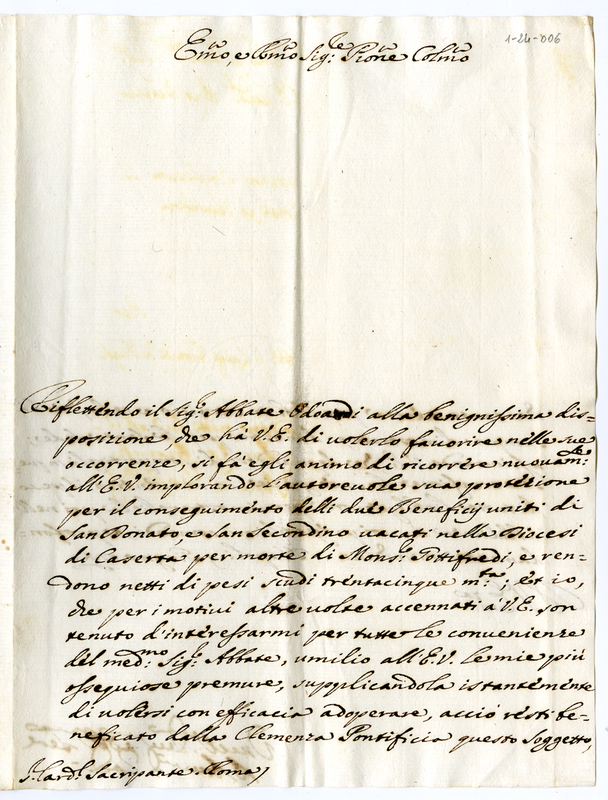 1-24-006
Emo, e Rmo Sig:re Prone Colmo
Riflettendo il Sig: Abbate Odoardi alla benignissima dis=
posizione, che hà V.E. di volerlo favorire nelle sue
occorrenze, si fà egli animo di ricorrere nuovam:te
all'E.V. implorando l'autorevole sua protezione
per il conseguimento delli due Beneficij uniti di
San Donato, e San Secondino vacati nella Diocesi
di Caserta per morte di Mons: Tottifredi, e ren=
dono netti di pesi scudi trentacinque m:ta; et io,
che per i motivi altre volte accennati à V.E. son
tenuto d'interessarmi per tutte le convenienze
del med:mo Sig: Abbate, umilio all'E.V. le mie più
ossequiose premure, supplicandola istantemente
di volersi con efficacia adoperare, acciò resti be=
neficato dalla Clemenza Pontificia questo Soggetto,
S: Card: Sacripante. Roma